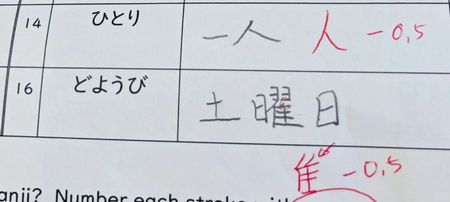 14 ひとり 一人 人 -0.5
16 どようび 土曜日
隹 -0.5
anji? Number each stroke wit